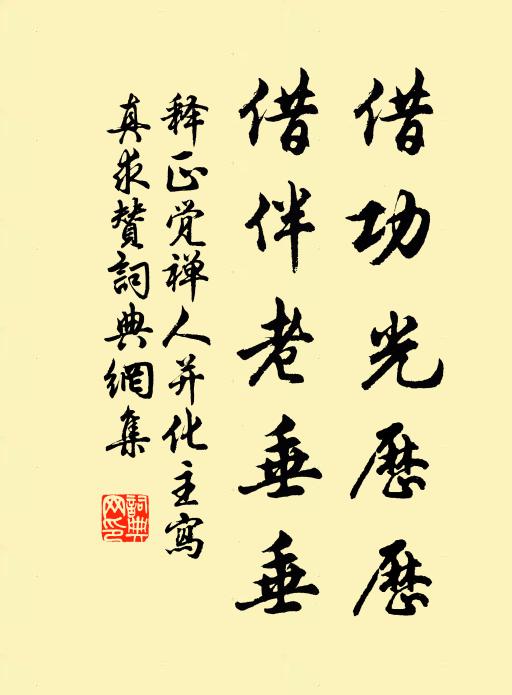 借功光歷歷
借伴老垂垂
释正覚禅人并化主寫
真求贊詞典網集
詞典网印